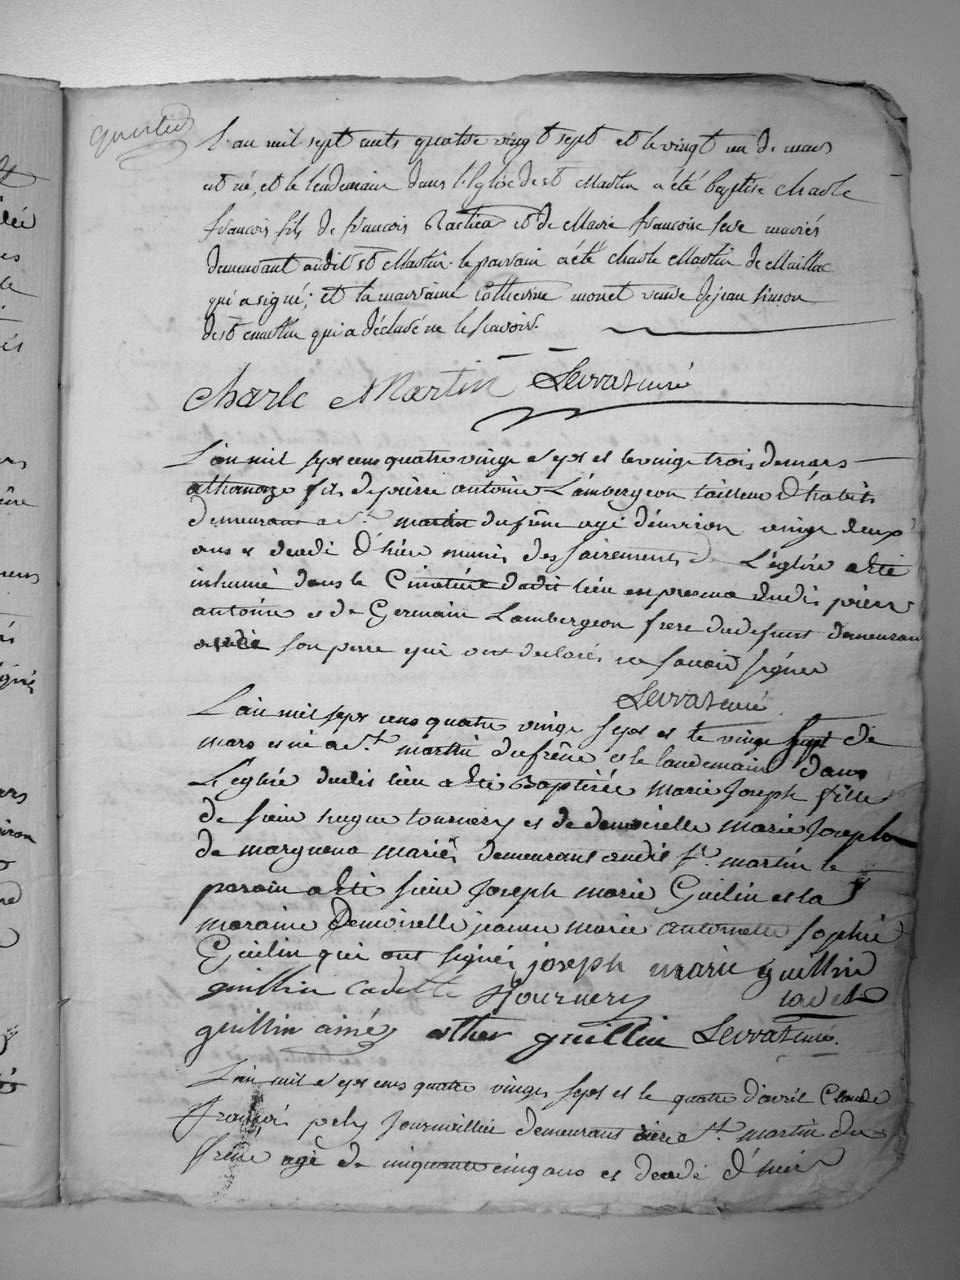 L'an mil sept cents quatre vingt sept et le vingt un de mars
est né, et le lendemain dans l'Eglise de st Martin a été baptisé charle
françois fils de françois et de Marie françoise mariés
demeurant audit st Martin. le parrain a été charle Martin de Maillac
qui a signé; et la marraine catherine monet veuve de jean simon
de st martin qui a déclaré ne le scavoir.
charle Martin Serrat curé
L'an mil sept cens quatre vingt sept et le vingt trois de mars
athanaze fils de pierre antoine Lambergeon tailleur d'habits
demeurant a St. martin du frêne agé d'environ vingt deux
ans et decedé d'hier munis des sacrements de L'église a eté
inhumé dans le Cimetière dudit lieu en presence dudit pierre
antoine et de Germain Lambergeon frere du defunt demeurant
avec son pere qui ont declarés ne savoir signer
Serrat curé
L'an mil sept cens quatre vingt sept et le vingt sept de
mars est né a St. martin du frêne et le landemain dans
L'église dudit lieu a eté Baptisée marie Joseph fille
de sieur hugue tournery et de demoiselle marie Joseph
de marguena mariés demeurant audit St. martin le
parain a eté sieur Joseph marie Guilin et la
maraine Demoiselle jeanne marie antoinette sophie
Guilin qui ont signés joseph marie guillin
guillin cadette tournery cadet
guillin ainé esther guillin Serrat curé.
L'an mil sept cens quatre vingt sept et le quatre d'avril Claude
françois pely Journallier demeurant a St. martin du
frêne agé de cinquante cinq ans et decedé d'hier